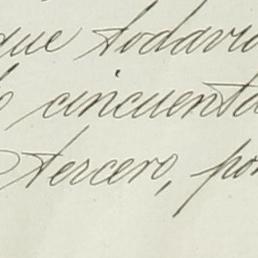 que todavía
cincuenta
tercero, por